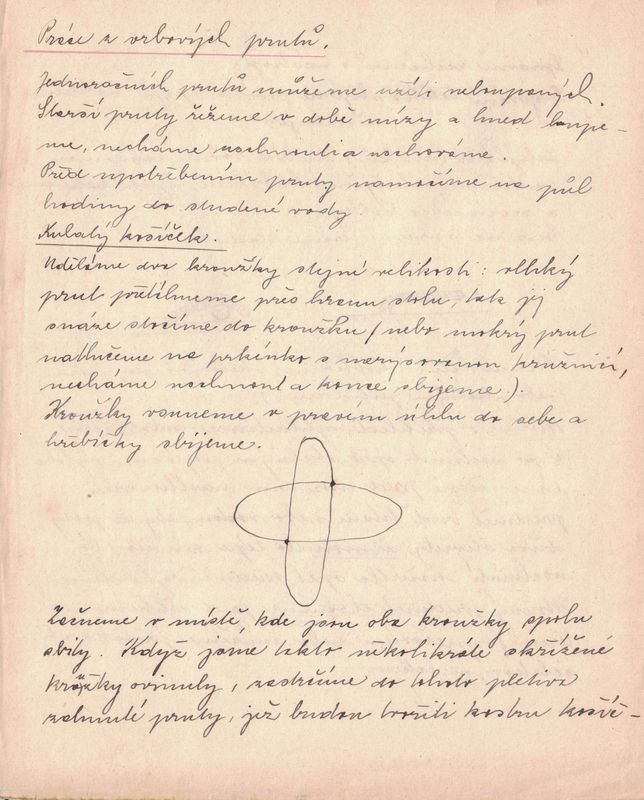 Práce z vrbových prutů.
Jednoročních prutů můžeme užíti neloupaných.
Starší pruty řežeme v době mízy a hned loupe-
me, necháme uschnouti a uschováme.
Před upotřebením pruty namočíme na půl
hodiny do studené vody.
Kulatý košíček.
Uděláme dva kroužky stejné velikosti: vlhký
prut přetáhneme přes hranu stolu, tak jej
snáze stočíme do kroužku (nebo mokrý prut
natlučeme na prkénko s narýsovanou kružnicí,
necháme uschnout a konce sbijeme).
Kroužky vsuneme v pravém úhlu do sebe a
hřebíčky sbijeme.
Začneme v místě, kde jsou oba kroužky spolu
sbity. Když jsme takto několikráte skřížené
kroužky ovinuly, zastrčíme do tohoto pletiva
zahnuté pruty, jež budou tvořiti kostru košíč-